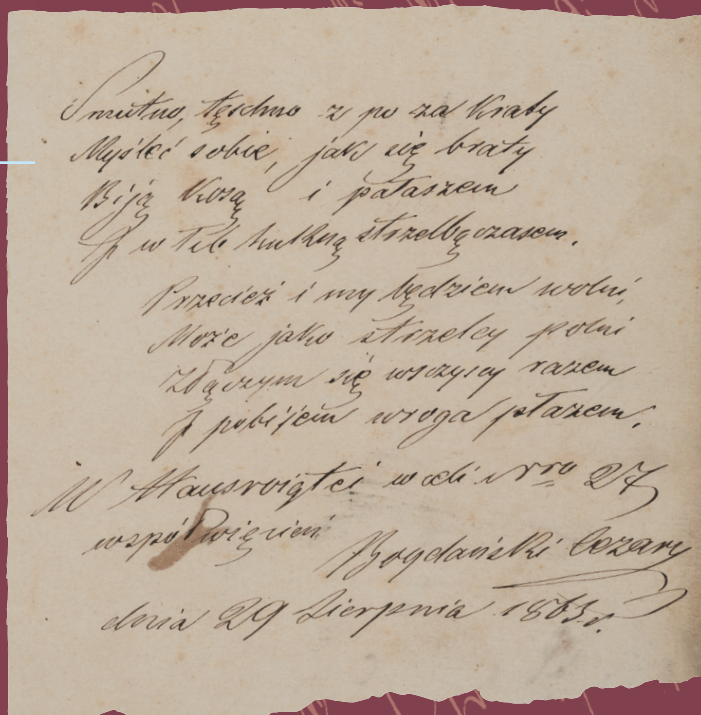 Smutno, tęschno z po za Kraty
Myśleć sobie, jak się braty
Biją Kosą i pałaszem
I w łeb hukną strzelbą czasem.
Przecież i my będziem wolni,
Może jako strzelcy polni
Złączym się wszyscy razem
I pobijem wroga płazem.
W w celi Nro 27
współwięzień
Bogdański Cezary
dnia 29 Sierpnia 1863 r.